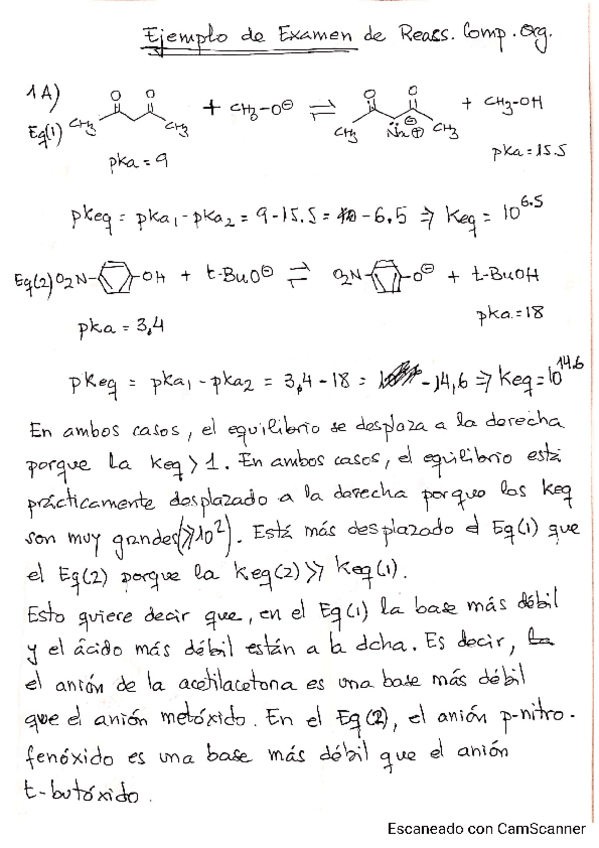 Ejemplo de Examen de Reacs. Comp. Org.
1A)
Eq(1) CH3 O O CH3 + CH3-O⊖ ⇌ CH3 O O CH3 Na⊕ + CH3-OH
pka = 9 pka = 15.5
pKeq = pka1 - pka2 = 9-15.5 = -6.5 ⇒ Keq = 10^6.5
Eq(2) O2N- -OH + t-BuO⊖ ⇌ O2N- -O⊖ + t-BuOH
pka = 3,4 pka = 18
pKeq = pka1 - pka2 = 3,4 - 18 = -14,6 ⇒ Keq = 10^14.6
En ambos casos, el equilibrio se desplaza a la derecha
porque la Keq > 1. En ambos casos, el equilibrio está
prácticamente desplazado a la derecha porque las Keq
son muy grandes (⩾10^2). Está más desplazado el Eq(1) que
el Eq(2) porque la Keq(2) >> Keq(1).
Esto quiere decir que, en el Eq(1) la base más débil
y el ácido más débil están a la dcha. Es decir,
el anión de la acetilacetona es una base más débil
que el anión metóxido. En el Eq(2), el anión p-nitro-
fenóxido es una base más débil que el anión
t-butóxido.
Escaneado con CamScanner